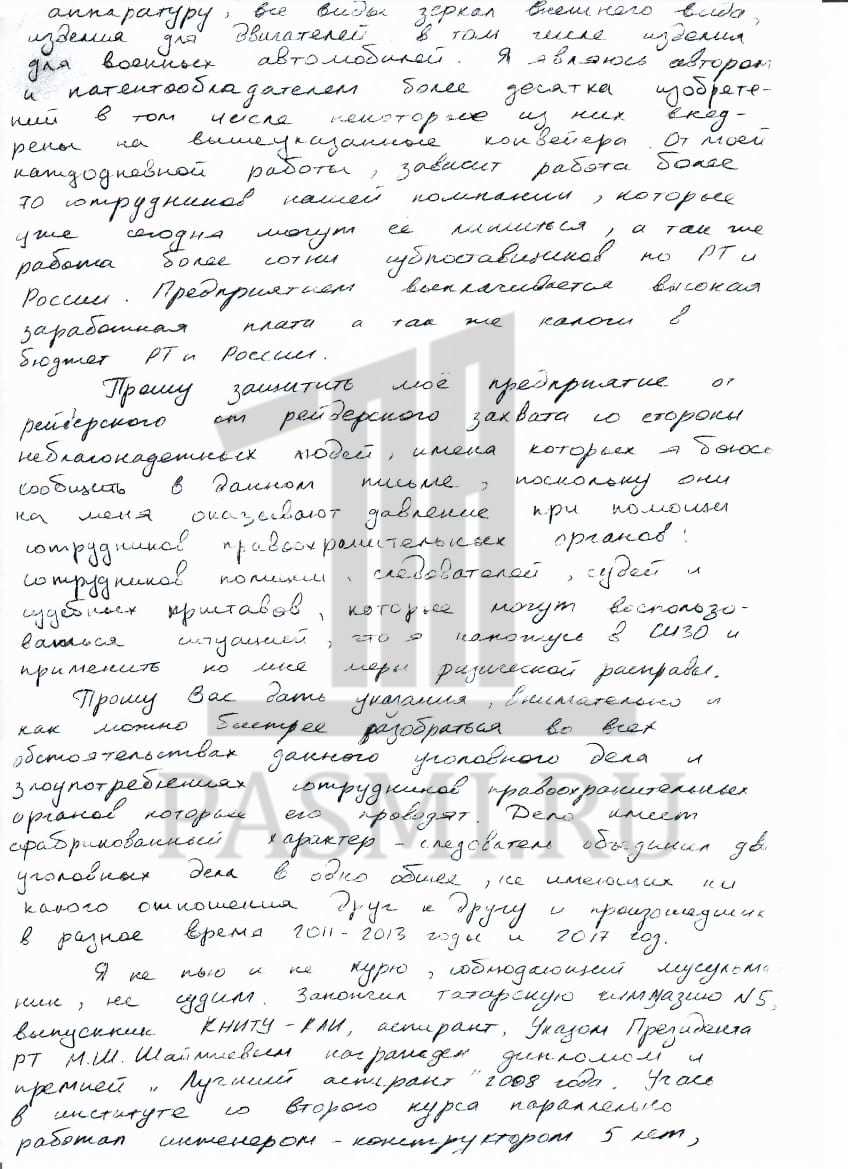 аппаратуру, все виды зеркал внешнего вида,
изделия для двигателей в том числе изделия
для военных автомобилей. Я являюсь автором
и патентообладателем более десятка изобрете-
ний в том числе некоторые из них внед-
рены на вышеуказанные конвейера. От моей
каждодневной работы, зависит работа более
70 сотрудников нашей компании, которые
уже сегодня могут ее лишиться, а так же
работа более сотни субпоставщиков по РТ и
России. Предприятием выплачивается высокая
заработная плата а так же налоги в
бюджет РТ и России.
Прошу защитить моё предприятие от
рейдерского от рейдерского захвата со стороны
неблагонадежных людей, имена которых я боюсь
сообщить в данном письме, поскольку они
на меня оказывают давление при помощи
сотрудников правоохранительных органов:
сотрудников полиции, следователей, судей и
судебных приставов, которые могут воспользо-
ваться ситуацией, что я нахожусь в СИЗО и
применить ко мне меры физической расправы.
Прошу Вас дать указания, внимательно и
как можно быстрее разобраться во всех
обстоятельствах данного уголовного дела и
злоупотреблениях сотрудников правоохранительных
органов которые его проводят. Дело имеет
сфабрикованный характер - следователи объединил два
уголовных дела в одно общее, не имеющих ни
какого отношения друг к другу и произошедших
в разное время 2011-2013 годы и 2017 год.
Я не пью и не курю, соблюдающий мусульма-
нин, не судим. Закончил татарскую гимназию N5,
выпускник КНИТУ-КАИ, аспирант, Указом Президента
РТ М.Ш. Шаймиевым награжден дипломом и
премией „Лучший аспирант" 2008 года. Учась
в институте со второго курса параллельно
работал инженером-конструктором 5 лет,
PASMI.RU